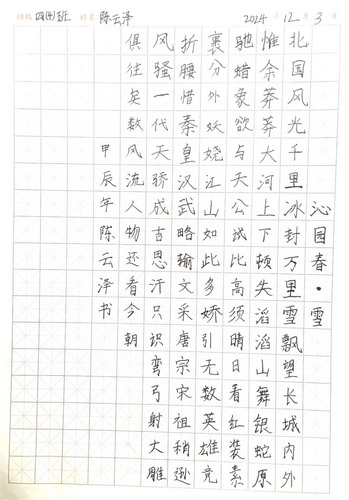 班级 四(四)班 姓名 陈云泽 2024年12月3日
沁园春·雪
北国风光千里冰封万里雪飘望长城内外
惟余莽莽大河上下顿失滔滔山舞银蛇原
驰蜡象欲与天公试比高须晴日看红装素
裹分外妖娆江山如此多娇引无数英雄竞
折腰惜秦皇汉武略输文采唐宗宋祖稍逊
风骚一代天骄成吉思汗只识弯弓射大雕
俱往矣数风流人物还看今朝
甲辰年陈云泽书